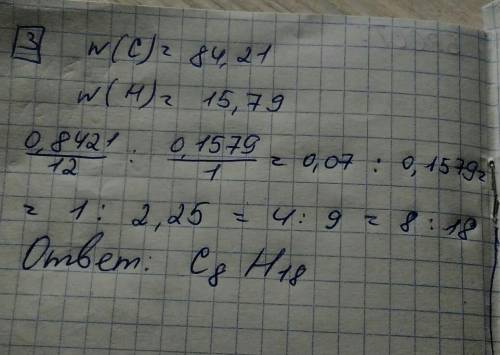 3 w(C) = 84,21
w(H) = 15,79
0,8421/12 : 0,1579/1 = 0,07 : 0,1579 =
= 1 : 2,25 = 4 : 9 = 8 : 18
Ответ: C₈ H₁₈